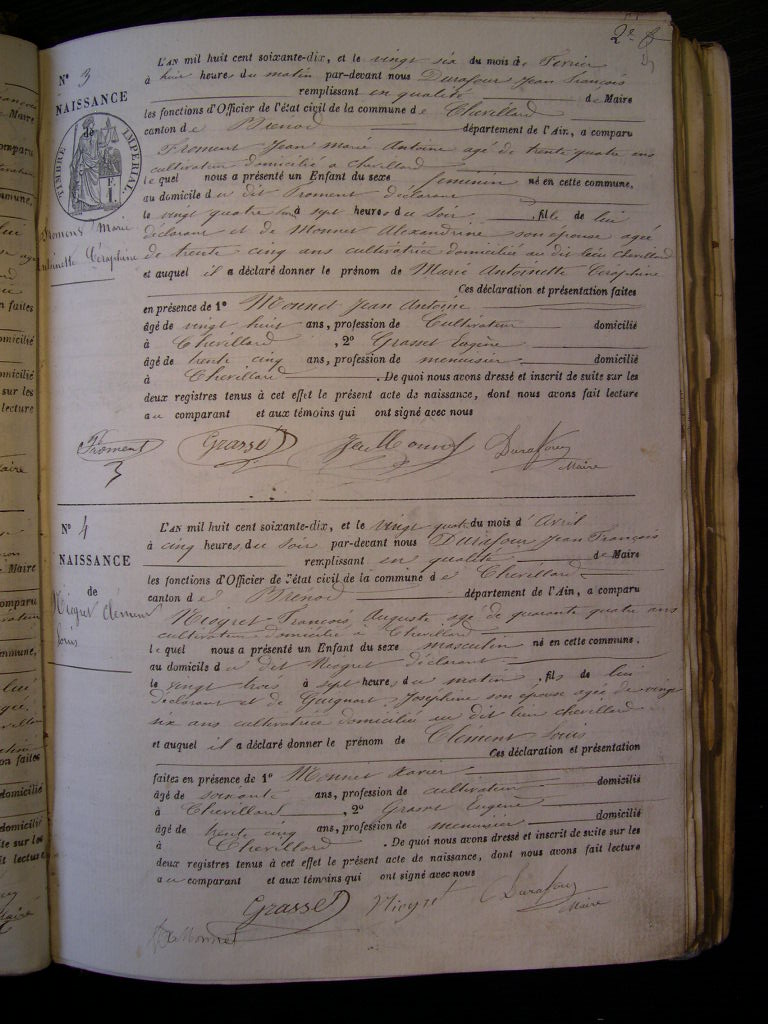 2e f
N° 3
NAISSANCE
de
TIMBRE IMPERIAL
F. 1
Froment Marie
Antoinette Céraphine
L'AN mil huit cent soixante-dix, et le vingt six du mois de Fevrier
à huit heures du matin par-devant nous Durafour Jean François
remplissant en qualité de Maire
les fonctions d'Officier de l'état civil de la commune de Chevillard
canton de Brenod département de l'Ain, a comparu
Froment Jean marie Antoine agé de trente quatre ans
cultivateur domicilié a Chevillard
lequel nous a présenté un Enfant du sexe feminin né en cette commune,
au domicile du dit Froment declarant
le vingt quatre à sept heures du Soir, fille de lui
declarant et de Monnet Alexandrine son épouse agée
de trente cinq ans cultivatrice domiciliée au dit lieu Chevillard
et auquel il a déclaré donner le prénom de Marie Antoinette Ceraphine
Ces déclaration et présentation faites
en présence de 1° Monnet Jean Antoine
âgé de vingt huit ans, profession de Cultivateur domicilié
à Chevillard, 2° Grasset Eugène
âgé de trente cinq ans, profession de menuisier domicilié
à Chevillard. De quoi nous avons dressé et inscrit de suite sur les
deux registres tenus à cet effet le présent acte de naissance, dont nous avons fait lecture
au comparant et aux témoins qui ont signé avec nous
Froment Grasset Jean Monnet Durafour
3 Maire
N° 4
NAISSANCE
de
Niogret Clément
Louis
L'AN mil huit cent soixante-dix, et le vingt quatre du mois d'Avril
à cinq heures du Soir par-devant nous Durafour Jean François
remplissant en qualité de Maire
les fonctions d'Officier de l'état civil de la commune de Chevillard
canton de Brenod département de l'Ain, a comparu
Niogret François Auguste agé de quarante quatre ans
cultivateur domicilié à Chevillard
lequel nous a présenté un Enfant du sexe masculin né en cette commune.
au domicile du dit Niogret déclarant
le vingt trois à sept heures du matin, fils de lui
déclarant et de Guignart Josephine son épouse agée de vingt
six ans cultivatrice domiciliée au dit lieu chevillard
et auquel il a déclaré donner le prénom de Clement Louis
Ces déclaration et présentation
faites en présence de 1° Monnet Xavier
âgé de soixante ans, profession de cultivateur domicilié
à Chevillard, 2° Grasset Eugène
âgé de trente cinq ans, profession de menuisier domicilié
à Chevillard. De quoi nous avons dressé et inscrit de suite sur les
deux registres tenus à cet effet le présent acte de naissance, dont nous avons fait lecture
au comparant et aux témoins qui ont signé avec nous
Grasset Niogret Durafour
Maire
Monnet